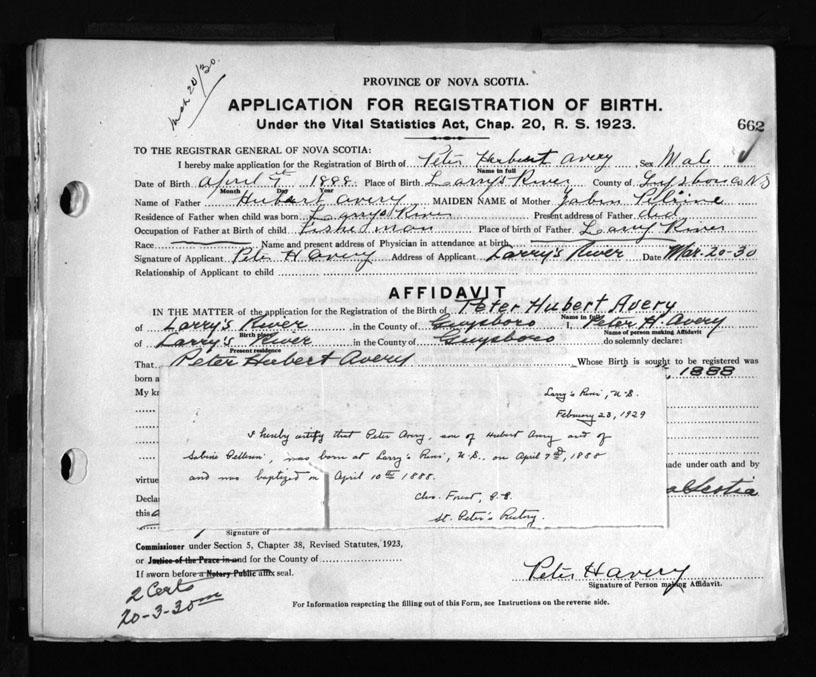 Mch 20/30.
PROVINCE OF NOVA SCOTIA.
APPLICATION FOR REGISTRATION OF BIRTH.
Under the Vital Statistics Act, Chap. 20, R. S. 1923.
662
TO THE REGISTRAR GENERAL OF NOVA SCOTIA:
I hereby make application for the Registration of Birth of Peter Hubert Avery Sex Male
Name in full
Date of Birth April 7th 1888 Place of Birth Larrys River County of Guysboro N S
Month Day
Name of Father Hubert avery MAIDEN NAME of Mother
Residence of Father when child was born Larrys River Present address of Father ded
Occupation of Father at Birth of child Fisherman Place of birth of Father Larry River
Race Name and present address of Physician in attendance at birth
Signature of Applicant Peter H Avery Address of Applicant Larry's River Date Mar. 20-30
Relationship of Applicant to child
AFFIDAVIT
IN THE MATTER of the application for the Registration of the Birth of Peter Hubert Avery
Name in full
of Larry's River in the County of Guysboro I, Peter H. Avery
Birth place Name of person making Affidavit
of Larry's River in the County of Guysboro do solemnly declare:
Present residence
That Peter Hubert Avery Whose Birth is sought to be registered was
born a 1888
My k
Larry's River, N.S.
February 23, 1929
I hereby certify that Peter Avery, son of Hubert Avery and of
Sabine Pellerin, was born at Larry's River, N.S., on April 7th, 1888
and was baptized on April 10th 1888.
Chas. Forest, P.P.
St. Peter's Rectory.
made under oath and by
virtue
Decla
this
Signature of
Commissioner under Section 5, Chapter 38, Revised Statutes, 1923,
or Justice of the Peace in and for the County of
If sworn before a Notary Public affix seal.
2 Certs
20-3-30
Peter H avery
Signature of Person making Affidavit.
For Information respecting the filling out of this Form, see Instructions on the reverse side.